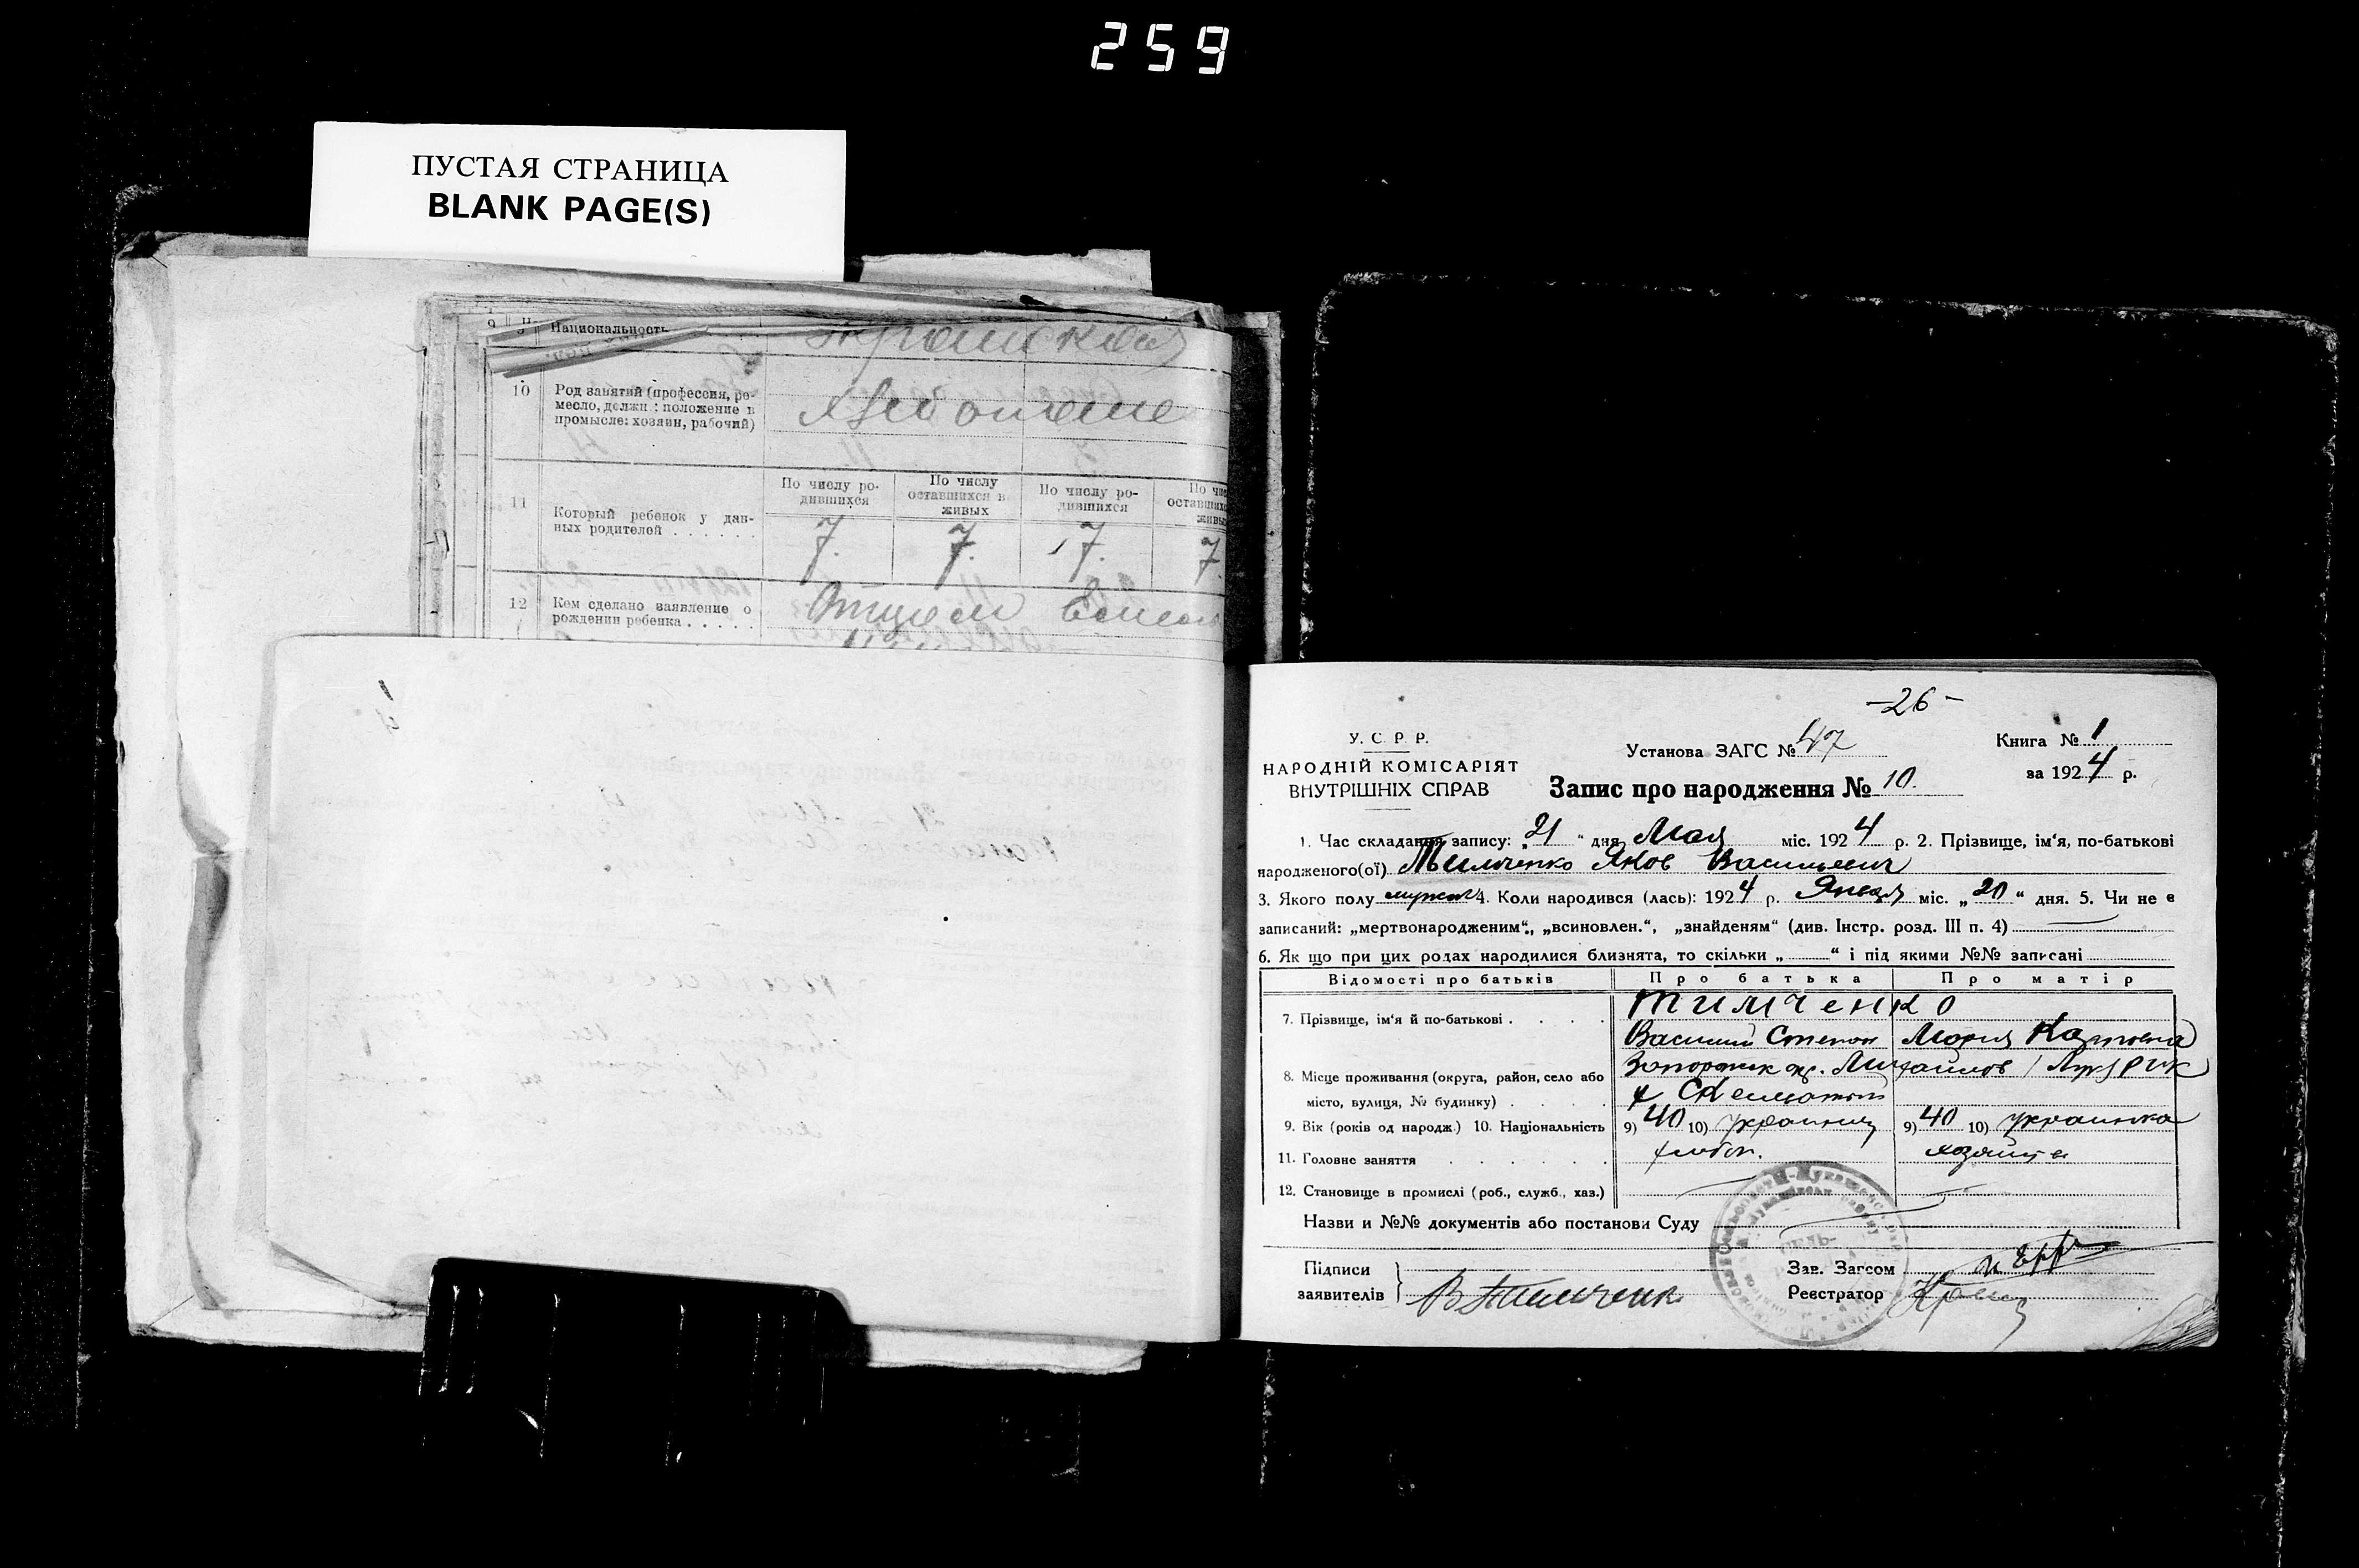 259
ПУСТАЯ СТРАНИЦА
BLANK PAGE(S)
9 Национальность
10 Род занятий (профессия, ре-
месло, должн : положение в
промысле: хозяин, рабочий)
По числу ро-
дившихся
По числу
оставшихся в
живых
По числу ро-
дившихся
11 Который ребенок у дан-
ных родителей . . . . . .
7. 7. 7. 7.
12 Кем сделано заявление о
рождении ребенка . . . . .
Отцом
-26-
У. С. Р. Р.
НАРОДНІЙ КОМІСАРІЯТ
ВНУТРІШНІХ СПРАВ
Установа ЗАГС № 47
Книга № 1
за 1924 р.
Запис про народження № 10.
1. Час складання запису: „21“ дня Мая міс. 1924 р. 2. Прізвище, ім‘я, по-батькові
народженого(ої) Тимченко Яков Васильевич
3. Якого полу мужск 4. Коли народився (лась): 1924 р. Января міс. „20“ дня. 5. Чи не є
записаний: „мертвонародженим“., „всиновлен.“, „знайденям“ (див. Інстр. розд. III п. 4)
6. Як що при цих родах народилися близнята, то скільки „ “ і під якими №№ записані
Відомості про батьків Про батька Про матір
7. Прізвище, ім‘я й по-батькові .
Тимченко
Василий Степан Мария
8. Місце проживання (округа, район, село або
місто, вулиця, № будинку)
9. Вік (років од народж.) 10. Національність 9) 40 10) украинец 9) 40 10) украинка
11. Головне заняття хлебоп. хозяйка
12. Становище в промислі (роб., служб., хаз.)
Назви и №№ документів або постанови Суду
Підписи
заявителів
В Тимченк
Зав. Загсом
Реєстратор